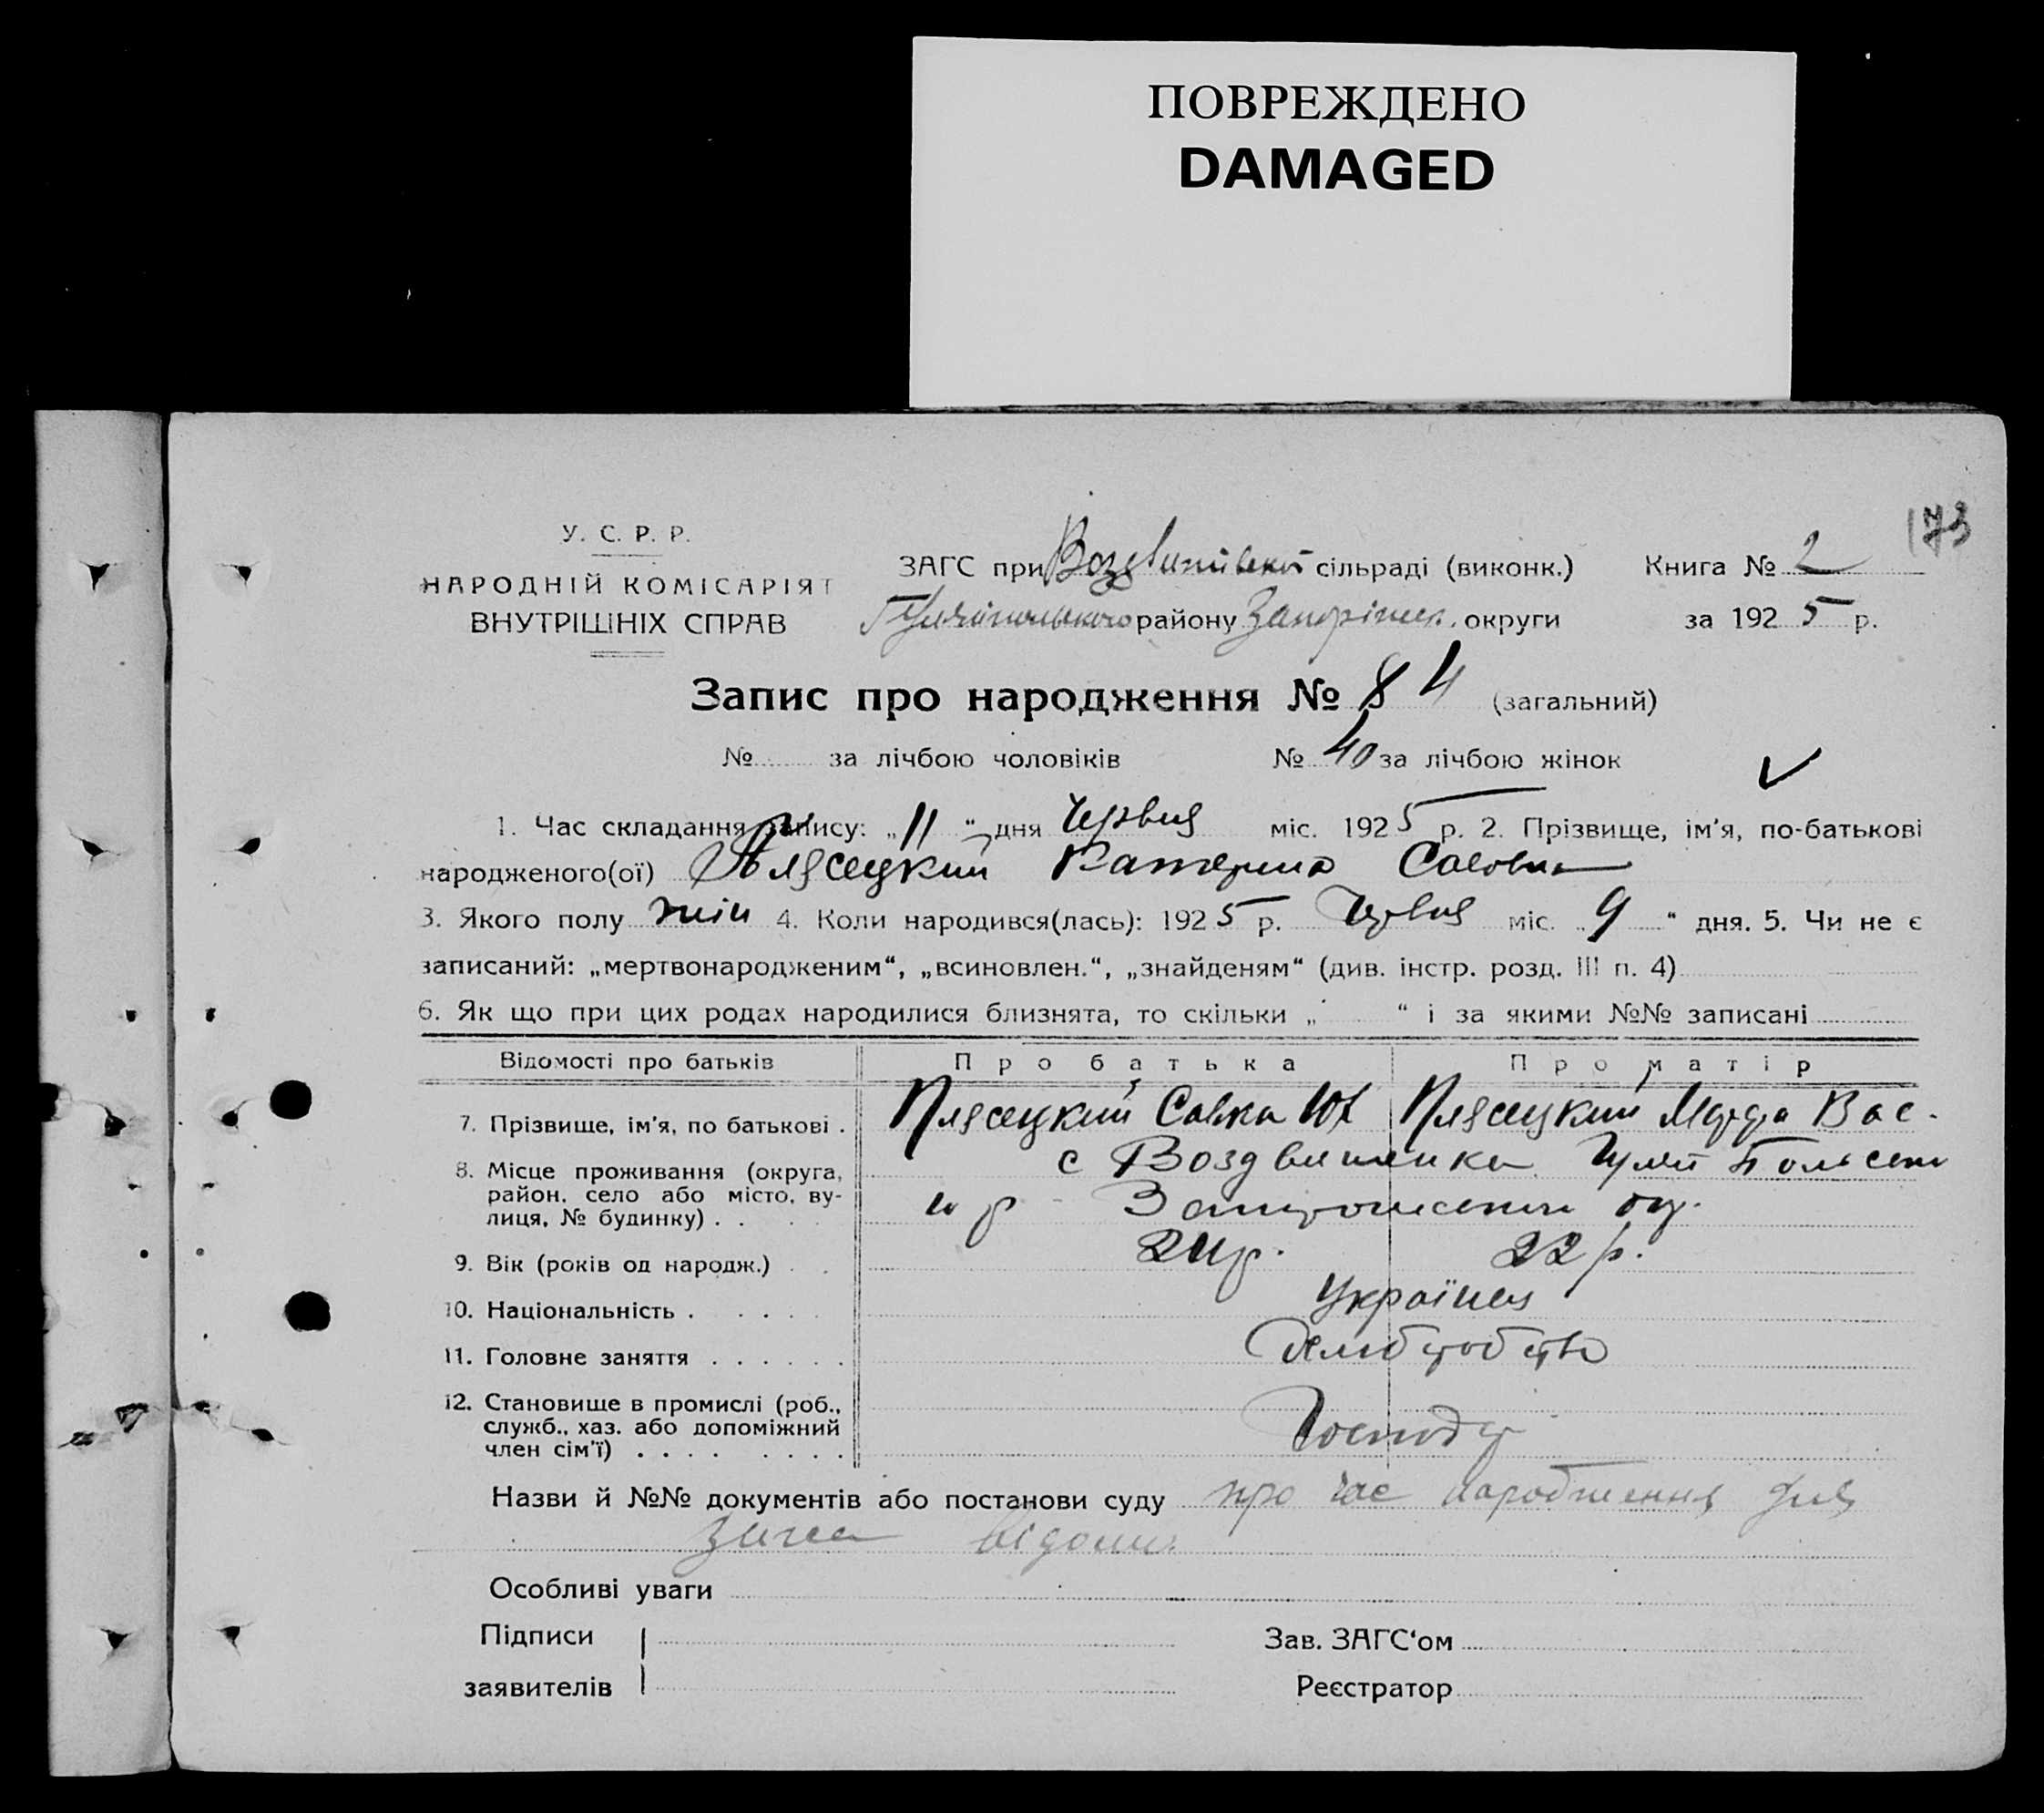 ПОВРЕЖДЕНО
DAMAGED
173
У. С. Р. Р.
НАРОДНІЙ КОМІСАРІЯТ
ВНУТРІШНІХ СПРАВ
ЗАГС при Воздвижівській сільраді (виконк.) Книга № 2
Гуляйпольського району Запоріжж. округи за 1925 р.
Запис про народження № 84 (загальний)
№ за лічбою чоловіків № 40 за лічбою жінок
1. Час складання запису: „11“ дня Червня міс. 1925 р. 2. Прізвище, ім'я, по-батькові
народженого(ої) Плясецкий Катерина Савовна
3. Якого полу жін 4. Коли народився(лась): 1925 р. Червня міс. 9 “ дня. 5. Чи не є
записаний: „мертвонародженим“, „всиновлен.“, „знайденям“ (див. інстр. розд. III п. 4)
6. Як що при цих родах народилися близнята, то скільки „ “ і за якими №№ записані
Відомості про батьків Про батька Про матір
7. Прізвище, ім'я, по батькові . Плясецкий Савка Плясецкий Марфа Вас.
8. Місце проживання (округа, район, село або місто, вулиця, № будинку) . . с Воздвиженка Гуляй Польськ
р Запорожской ок.
9. Вік (років од народж.) . . 24 р. 22 р.
10. Національність . . . . . Українця
11. Головне заняття . . . . . . Хліборобство
12. Становище в промислі (роб.,
служб., хаз. або допоміжний
член сім'ї) . . . . . . . . Господ
Назви й №№ документів або постанови суду про час народження
відом.
Особливі уваги
Підписи Зав. ЗАГС‘ом
заявителів Реєстратор